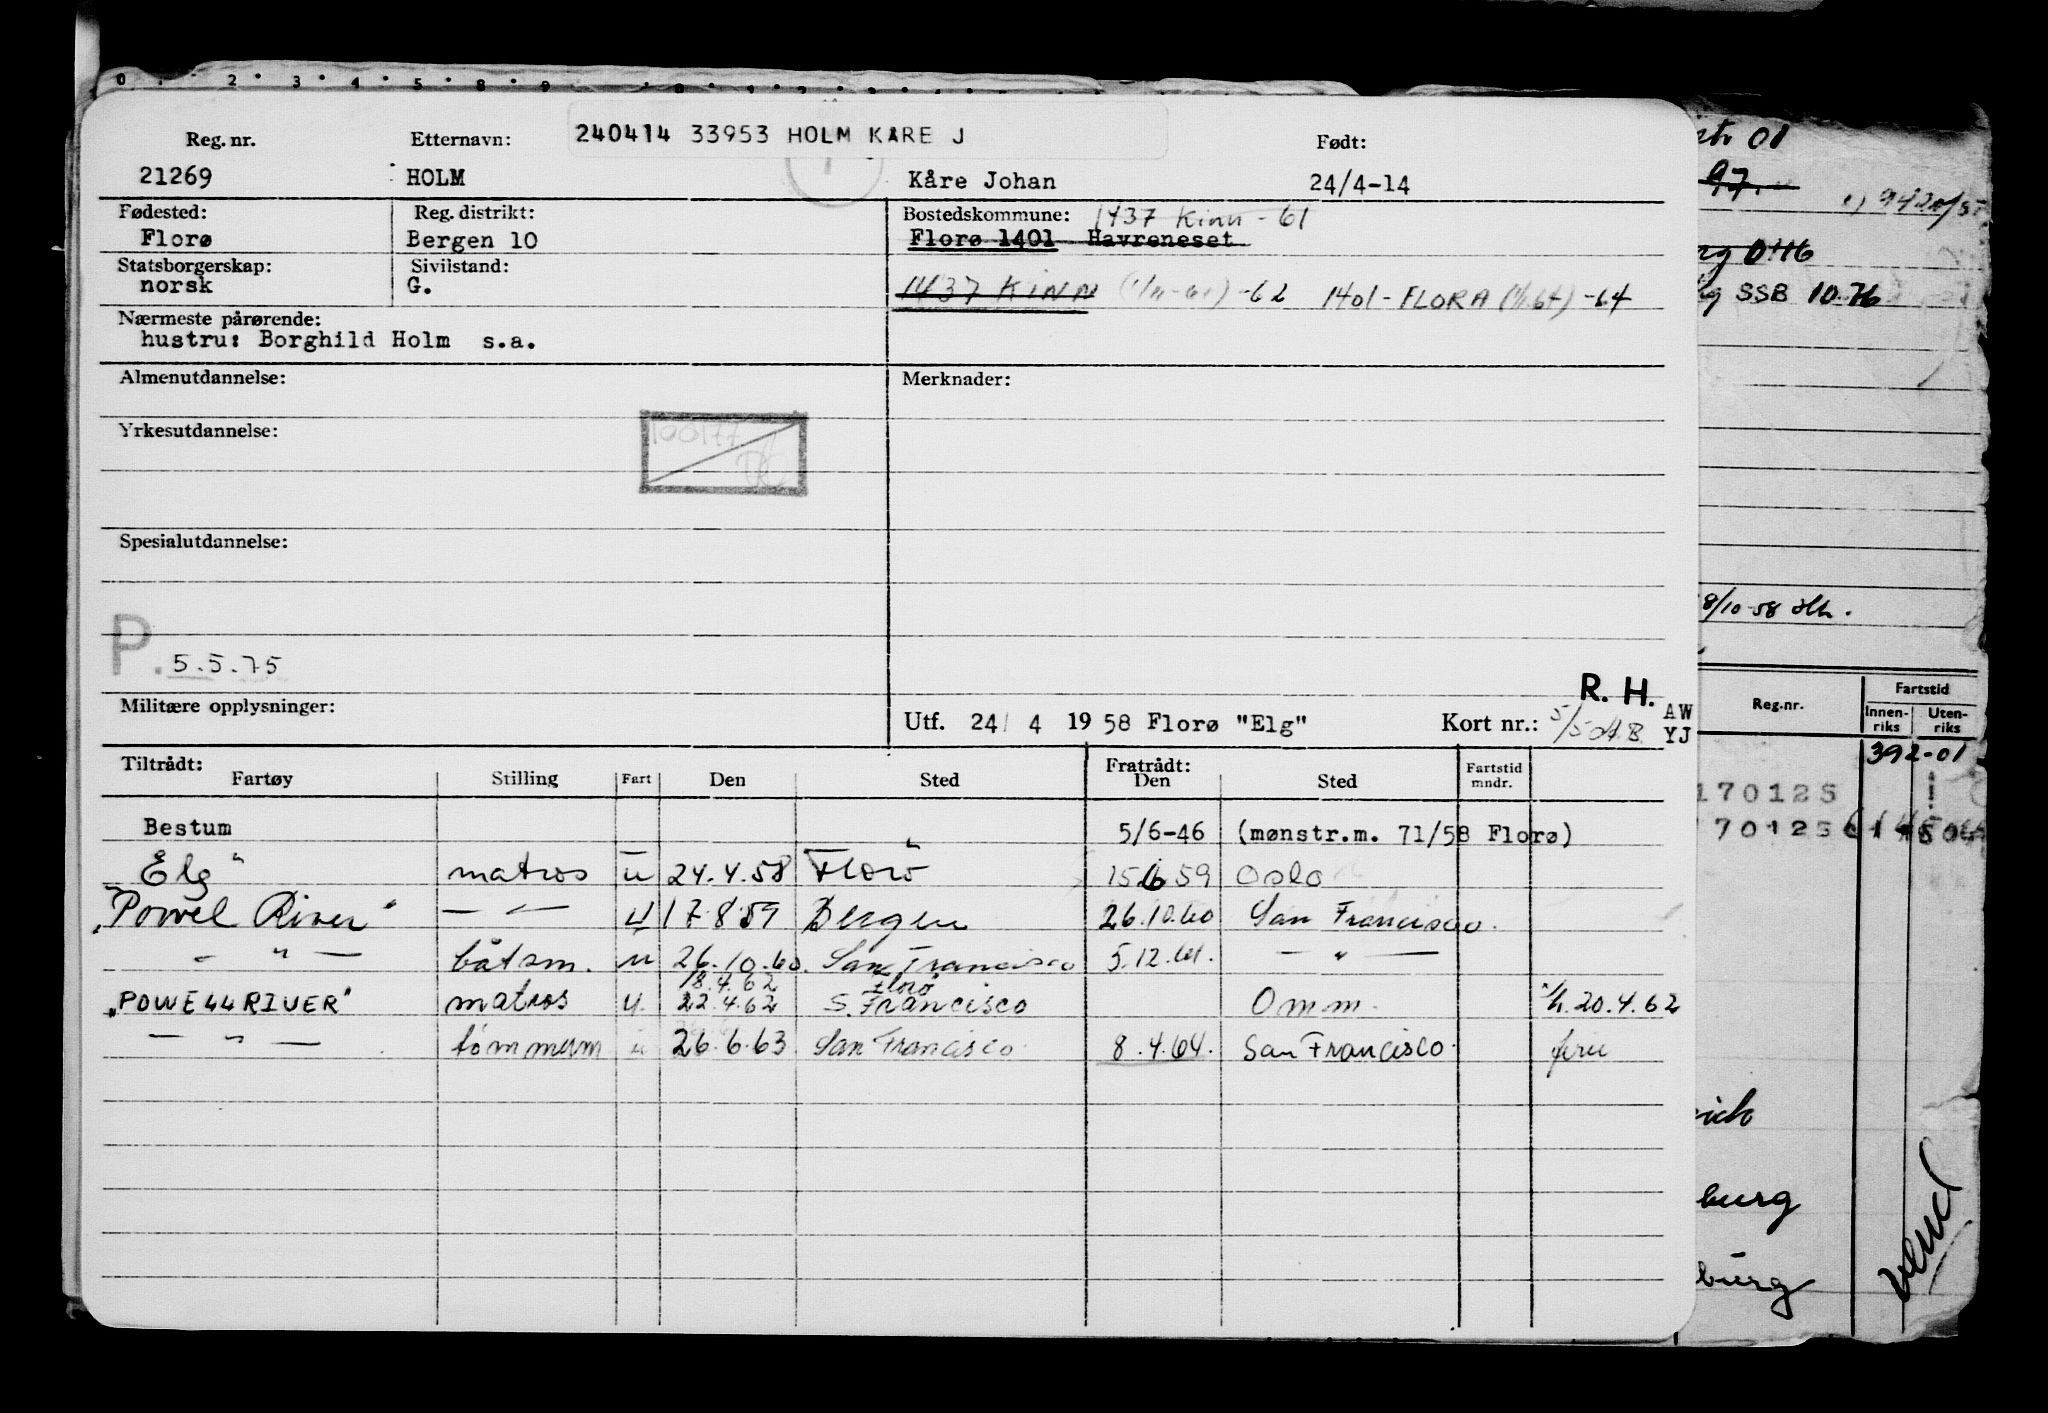 0 . 2 . 3 . 4 . 5 . 8 . 9
240414 33953 HOLM KARE J
Reg. nr. Etternavn: Født:
21269 HOLM Kåre Johan 24/4-14
Fødested: Reg. distrikt: Bostedskommune: 1437 Kinn - 61
Florø Bergen 10 Florø 1401 Havreneset
Statsborgerskap: Sivilstand:
norsk G. 1437 KINN -62 1401 - FLORA -64
Nærmeste pårørende:
hustru: Borghild Holm s.a.
Almenutdannelse: Merknader:
Yrkesutdannelse:
100177
Spesialutdannelse:
P. 5.5.75
R. H.
Militære opplysninger: Utf. 24/ 4 19 58 Florø "Elg" Kort nr.: AW
YJ
Tiltrådt: Fratrådt:
Fartøy Stilling Fart Den Sted Den Sted Fartstid mndr.
Bestum 5/6-46 (mønstr.m. 71/58 Florø)
Elg" matros u 24.4.58 Florö 15.6.59 Oslo
"Powel River" — " — u 17.8.59 Bergen 26.10.60 San Francisco.
- " — båtsm. u 26.10.60. San Francisco 5.12.61. — " —
18.4.62 Florö
"POWELL RIVER" matros u. 22.4.62 S. Francisco Omm. 20.4.62
— " — tömmerm u 26.6.63 San Francisco 8.4.64. San Francisco.
01
97.
9420/57
0416
SSB 10.76
8/10-58
Reg.nr. Fartstid
Innen-
riks Uten-
riks
392-01
170125 !
70125
burg
burg
vend